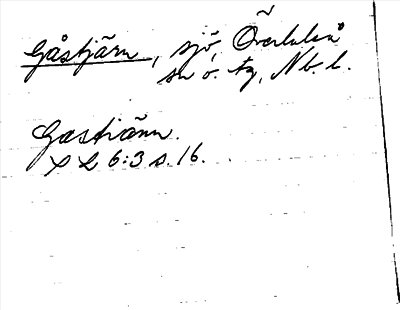 Gåstjärn, sjö, Överluleå
sn o. tg, Nb. l.
Gastiärnn.
X L 6:3 s. 16.